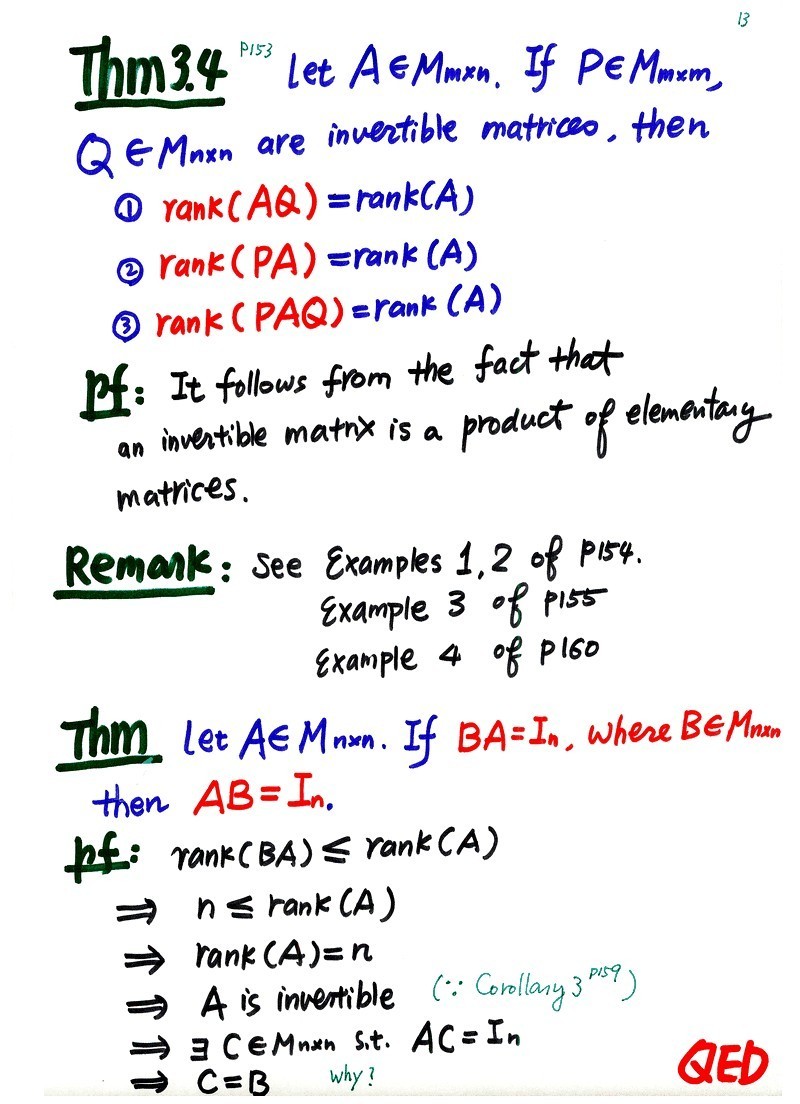 13
Thm 3.4 P153 Let A∈Mm×n. If P∈Mm×m,
Q∈Mn×n are invertible matrices, then
① rank(AQ)=rank(A)
② rank(PA)=rank(A)
③ rank(PAQ)=rank(A)
pf: It follows from the fact that
an invertible matrix is a product of elementary
matrices.
Remark: See Examples 1,2 of P154.
Example 3 of P155
Example 4 of P160
Thm Let A∈Mn×n. If BA=In, where B∈Mn×n
then AB=In.
pf: rank(BA)≤rank(A)
⇒ n≤rank(A)
⇒ rank(A)=n
⇒ A is invertible (∵ Corollary 3 P159)
⇒ ∃ C∈Mn×n s.t. AC=In
⇒ C=B why? QED